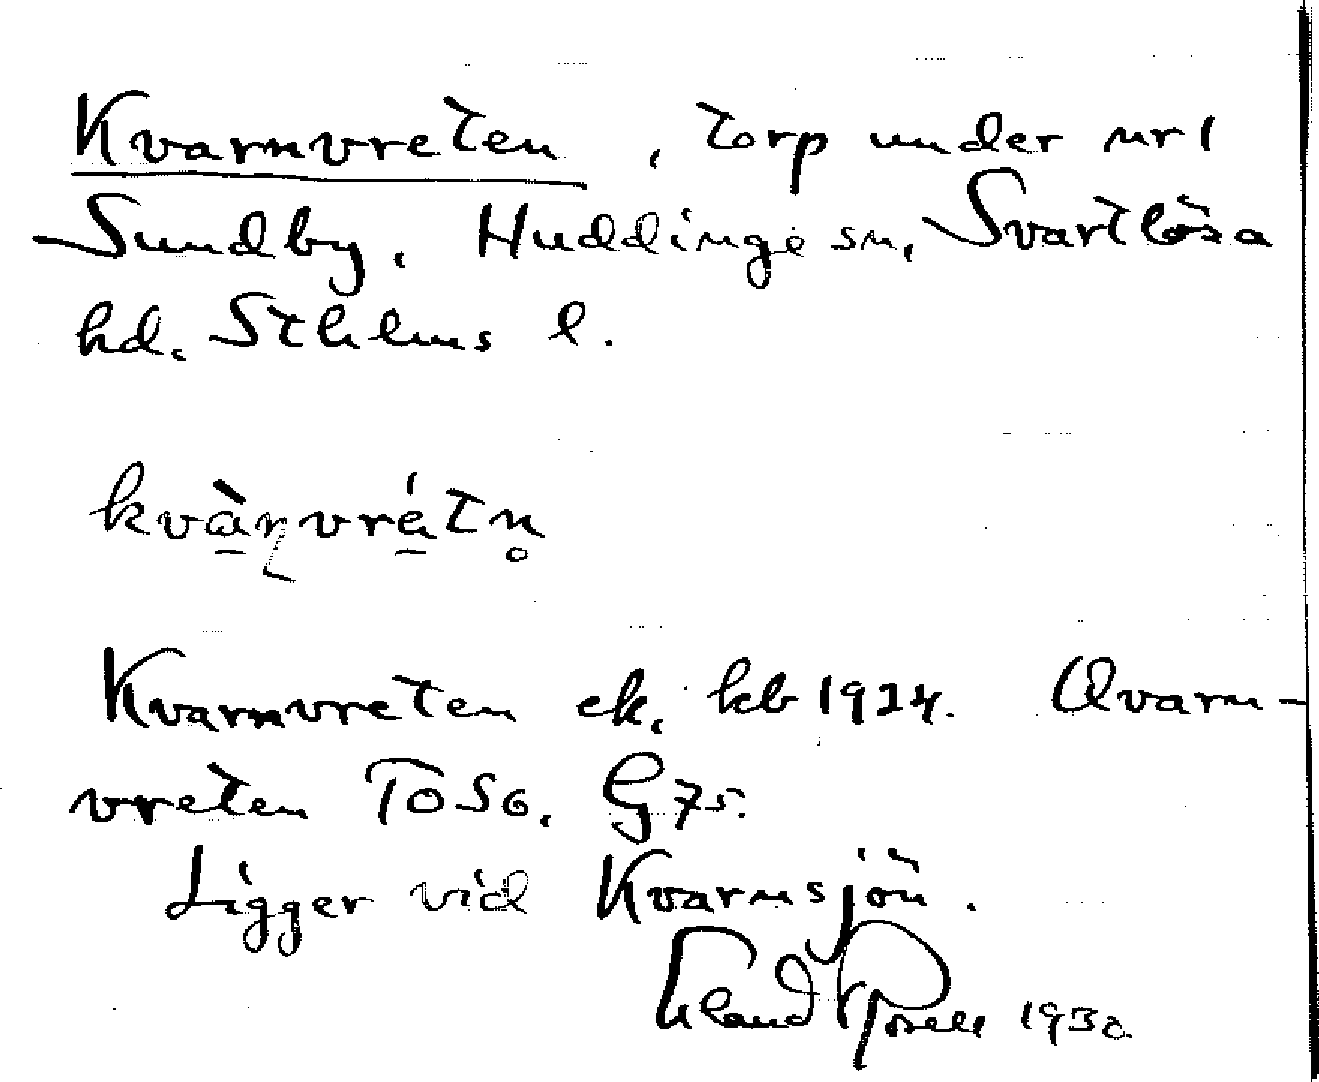 Kvarnvreten, torp under nr 1
Sundby, Huddinge sn, Svartlösa
hd. Sthlms l.
kvàɳvrétn̥
Kvarnvreten ek. kb 1924. Qvarn-
vreten TOSG. G 75.
Ligger vid Kvarnsjön.
1930